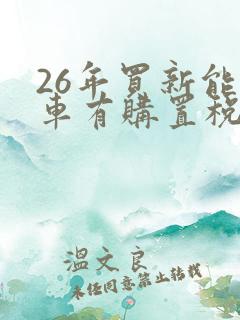 26年買新能
車有購置稅
溫文良
未任同意禁止轉載